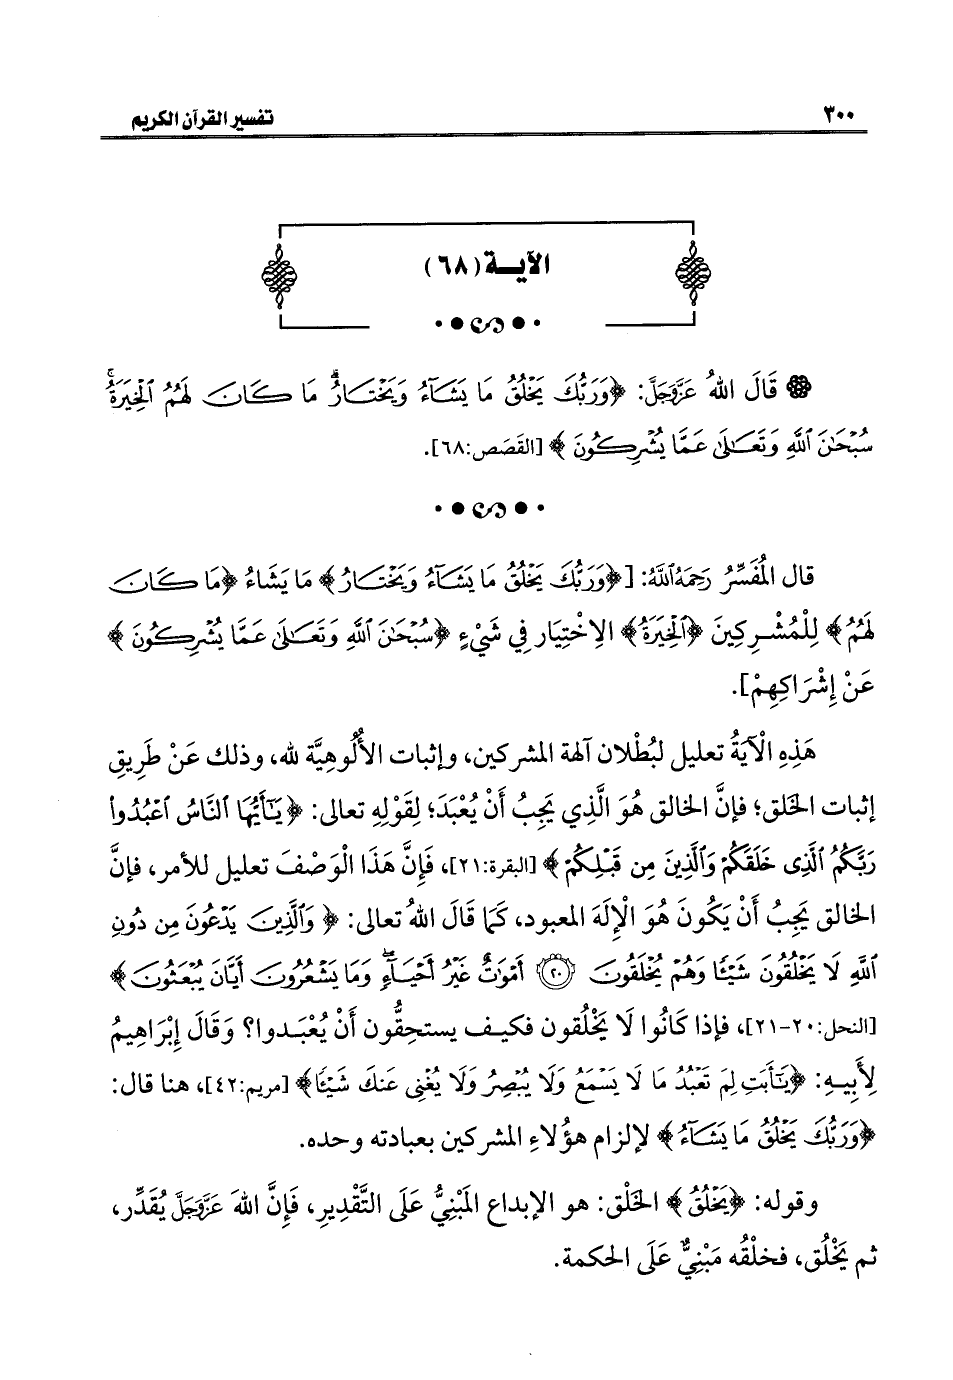 ٣٠٠ تفسير القرآن الكريم
الآيــة (٦٨)
قَالَ اللهُ عَزَّوَجَلَّ: ﴿وَرَبُّكَ يَخْلُقُ مَا يَشَآءُ وَيَخْتَارُ ۗ مَا كَانَ لَهُمُ ٱلْخِيَرَةُ ۚ
سُبْحَٰنَ ٱللَّهِ وَتَعَٰلَىٰ عَمَّا يُشْرِكُونَ﴾ [القَصَص:٦٨].
قال المُفَسِّرُ رَحِمَهُ ٱللَّهُ: [﴿وَرَبُّكَ يَخْلُقُ مَا يَشَآءُ وَيَخْتَارُ﴾ مَا يَشَاءُ ﴿مَا كَانَ
لَهُمُ﴾ لِلْمُشْرِكِينَ ﴿ٱلْخِيَرَةُ﴾ الِاخْتِيَار فِي شَيْءٍ ﴿سُبْحَٰنَ ٱللَّهِ وَتَعَٰلَىٰ عَمَّا يُشْرِكُونَ﴾
عَنْ إِشْرَاكِهِمْ].
هَذِهِ الْآيَةُ تعليل لبُطْلان آلهة المشركين، وإثبات الأُلُوهِيَّة لله، وذلك عَنْ طَرِيق
إثبات الخَلق؛ فإنَّ الخالق هُوَ الَّذِي يَجِبُ أَنْ يُعْبَدَ؛ لِقَوْلِهِ تعالى: ﴿يَٰٓأَيُّهَا ٱلنَّاسُ ٱعْبُدُوا۟
رَبَّكُمُ ٱلَّذِى خَلَقَكُمْ وَٱلَّذِينَ مِن قَبْلِكُمْ﴾ [البقرة:٢١]، فَإِنَّ هَذَا الْوَصْفَ تعليل للأمر، فإنَّ
الخالق يَجِبُ أَنْ يَكُونَ هُوَ الْإِلَهَ المعبود، كَمَا قَالَ اللهُ تعالى: ﴿وَٱلَّذِينَ يَدْعُونَ مِن دُونِ
ٱللَّهِ لَا يَخْلُقُونَ شَيْـًٔا وَهُمْ يُخْلَقُونَ ۝٢٠ أَمْوَٰتٌ غَيْرُ أَحْيَآءٍ ۖ وَمَا يَشْعُرُونَ أَيَّانَ يُبْعَثُونَ﴾
[النحل:٢٠-٢١]، فإذا كَانُوا لَا يَخْلُقون فكيف يستحِقُّون أَنْ يُعْبَدوا؟ وَقَالَ إِبْرَاهِيمُ
لِأَبِيهِ: ﴿يَٰٓأَبَتِ لِمَ تَعْبُدُ مَا لَا يَسْمَعُ وَلَا يُبْصِرُ وَلَا يُغْنِى عَنكَ شَيْـًٔا﴾ [مريم:٤٢]، هنا قال:
﴿وَرَبُّكَ يَخْلُقُ مَا يَشَآءُ﴾ لإلزام هؤلاءِ المشركين بعبادته وحده.
وقوله: ﴿يَخْلُقُ﴾ الخَلْق: هو الإبداع المَبْنِيُّ عَلَى التَّقْدِيرِ، فَإِنَّ اللهَ عَزَّوَجَلَّ يُقَدِّر،
ثم يَخْلُق، فخلْقُه مَبْنِيٌّ عَلَى الحكمة.